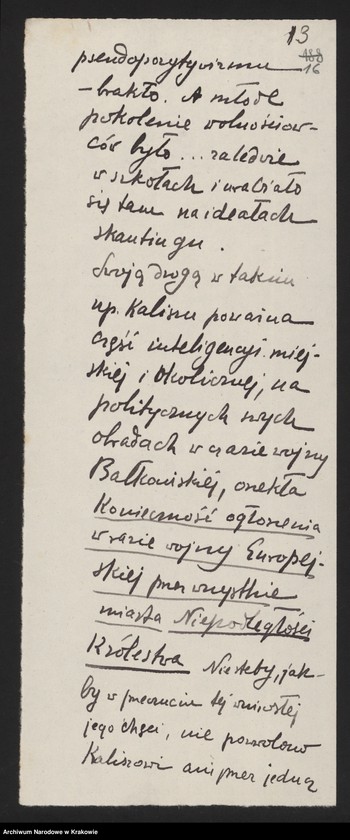 13
188
16
pseudopozytywizmu
– brakło. A młode
pokolenie wolnościow-
ców było ... zaledwie
w szkołach i urabiało
się tam na ideałach
skautingu.
Swoją drogą w takim
np. Kaliszu poważna
część inteligencyi miej-
skiej i okolicznej, na
politycznych swych
obradach w czasie wojny
Bałkańskiej, orzekła
Konieczność ogłoszenia
w razie wojny Europej-
skiej przez wszystkie
miasta Niepodległości
Królestwa Niestety, jak-
by w przeczuciu tej wzniosłej
jego chęci, nie pozwolono
Kaliszowi ani przez jedną
Archiwum Narodowe w Krakowie